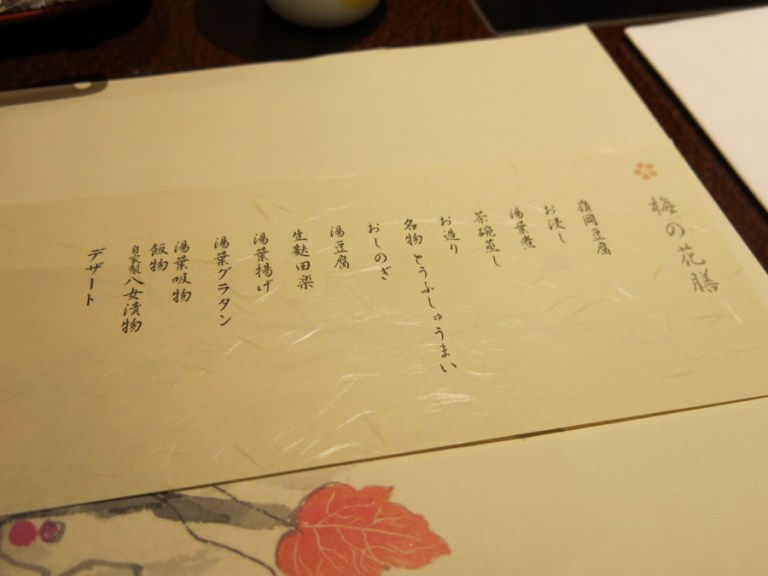 梅の花膳
嶺岡豆腐
お浸し
湯葉煮
茶碗蒸し
お造り
名物とうふしゅうまい
おしのぎ
湯豆腐
生麩田楽
湯葉揚げ
湯葉グラタン
湯葉吸物
飯物
自家製八女漬物
デザート